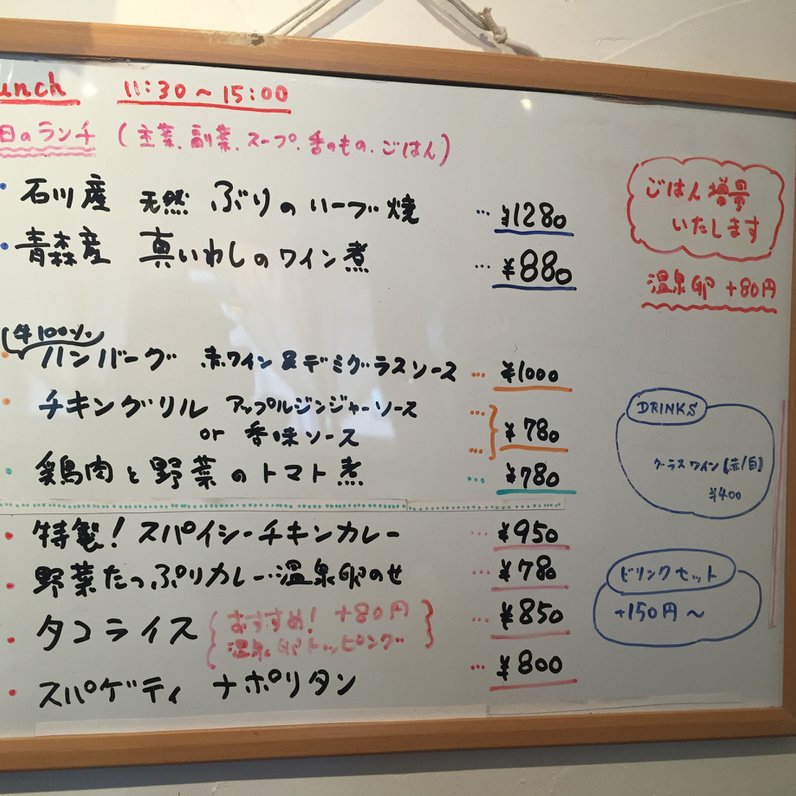 unch 11:30～15:00
日のランチ (主菜、副菜、スープ、香のもの、ごはん)
・石川産 天然 ぶりのハーブ焼 … ¥1280
・青森産 真いわしのワイン煮 … ¥880
ごはん増量
いたします
温泉卵 +80円
(牛100%)
・ハンバーグ 赤ワイン&デミグラスソース … ¥1000
・チキングリル アップルジンジャーソース …
or 香味ソース … ¥780
・鶏肉と野菜のトマト煮 … ¥780
DRINKS
グラスワイン【赤/白】
¥400
・特製!スパイシーチキンカレー … ¥950
・野菜たっぷりカレー…温泉卵のせ … ¥780
・タコライス {おすすめ! +80円 … ¥850
温泉卵トッピング}
・スパゲティ ナポリタン … ¥800
ドリンクセット
+150円～